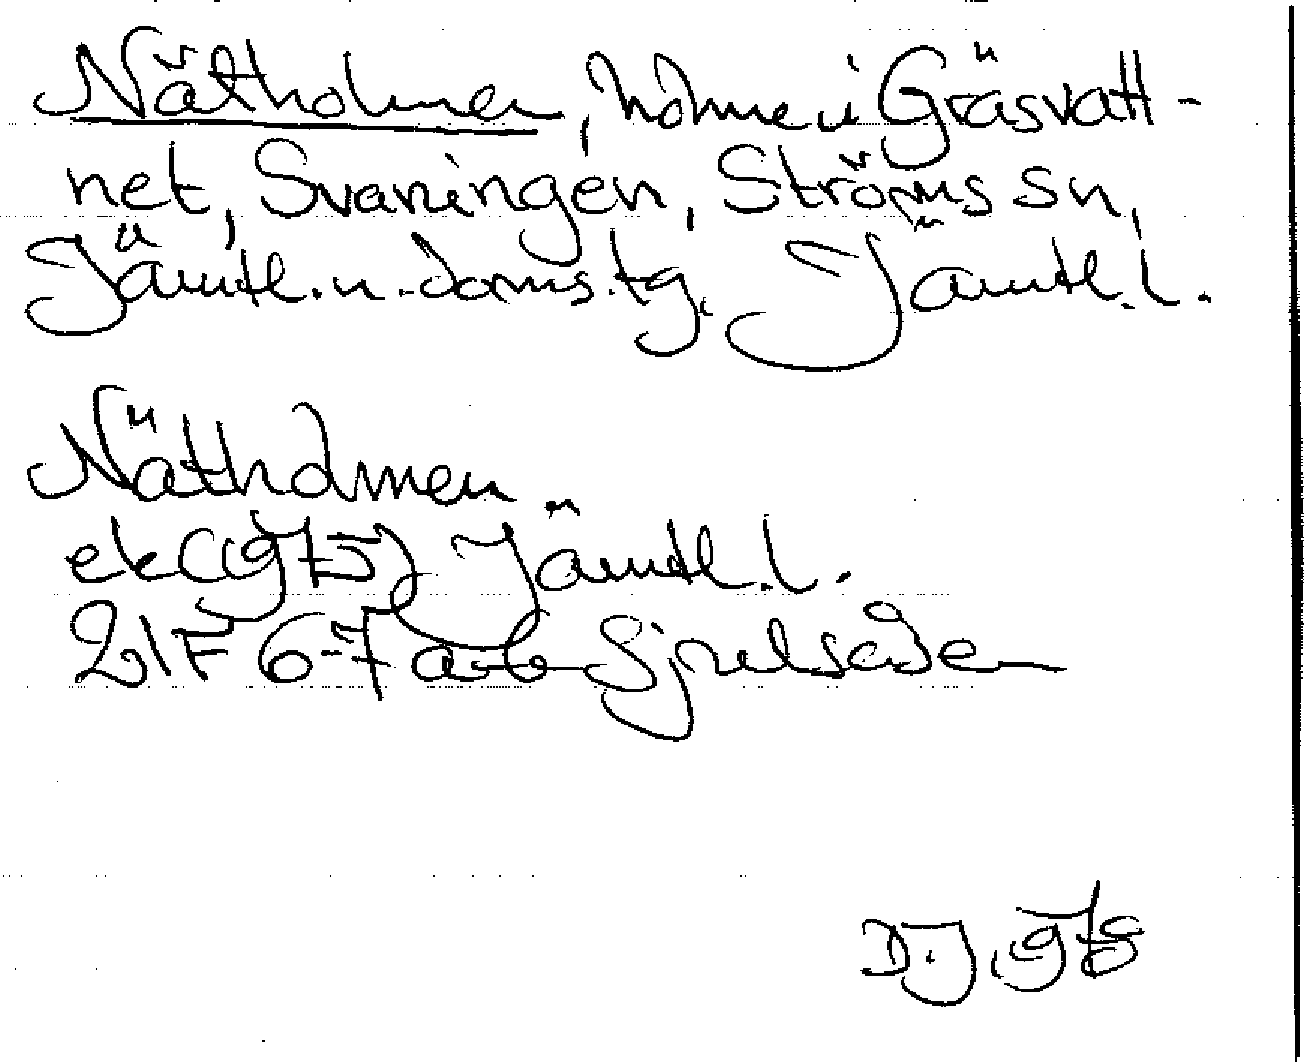 Nätholmen, holme i Gräsvatt-
net, Svaningen, Ströms sn,
Jämtl. n. doms.tg. Jämtl. l.
Nätholmen
ek (1975) Jämtl. l.
21F 6-7 a-b
D.J 1978